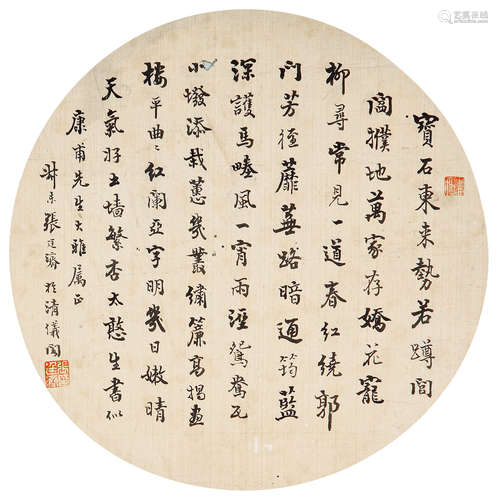 寶石東来勢若蹲閭
閻撲地萬家存嬌花寵
柳尋常見一道春紅繞郭
门芳徑蘼蕪路暗通筠籃
深護馬塍風一宵雨溼鴛鴦瓦
小墢添栽蕙幾叢繡簾高揭畫
樓平曲曲紅闌亞字明幾日嫩晴
天氣好土墻繁杏太憨生書似
康甫先生大雅属正
叔未張廷濟於清儀閣